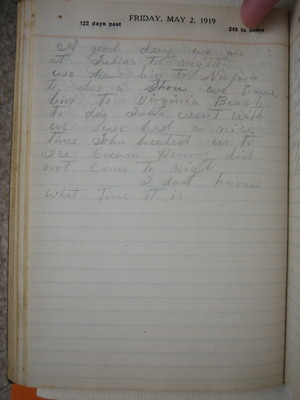 122 days past
FRIDAY, MAY 2, 1919
243 to come
A good day we are
at Julias to night
we have bin to
to see a Show we have
bin to Virginia Beach
to day Julia went with
us we had a nice
time John us to
Ice Cream Henry did
not Come to nigh
I dont know
what time it is